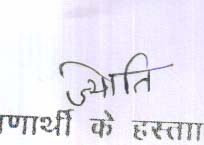 ज्योति
णार्थी के हस्ता